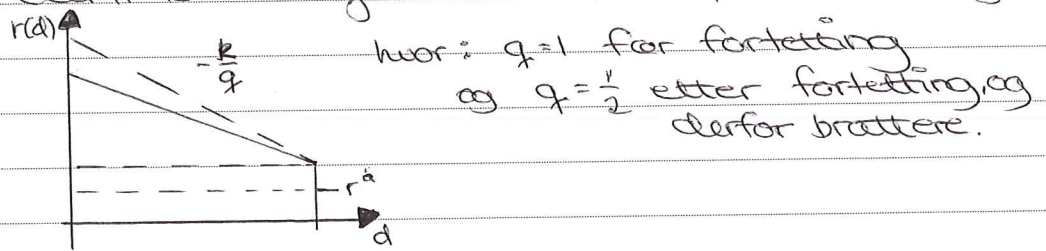 r(d)
- k/q
hvor: q=1 før fortetting
og q=1/2 etter fortetting, og
derfor brattere.
- r^a
d